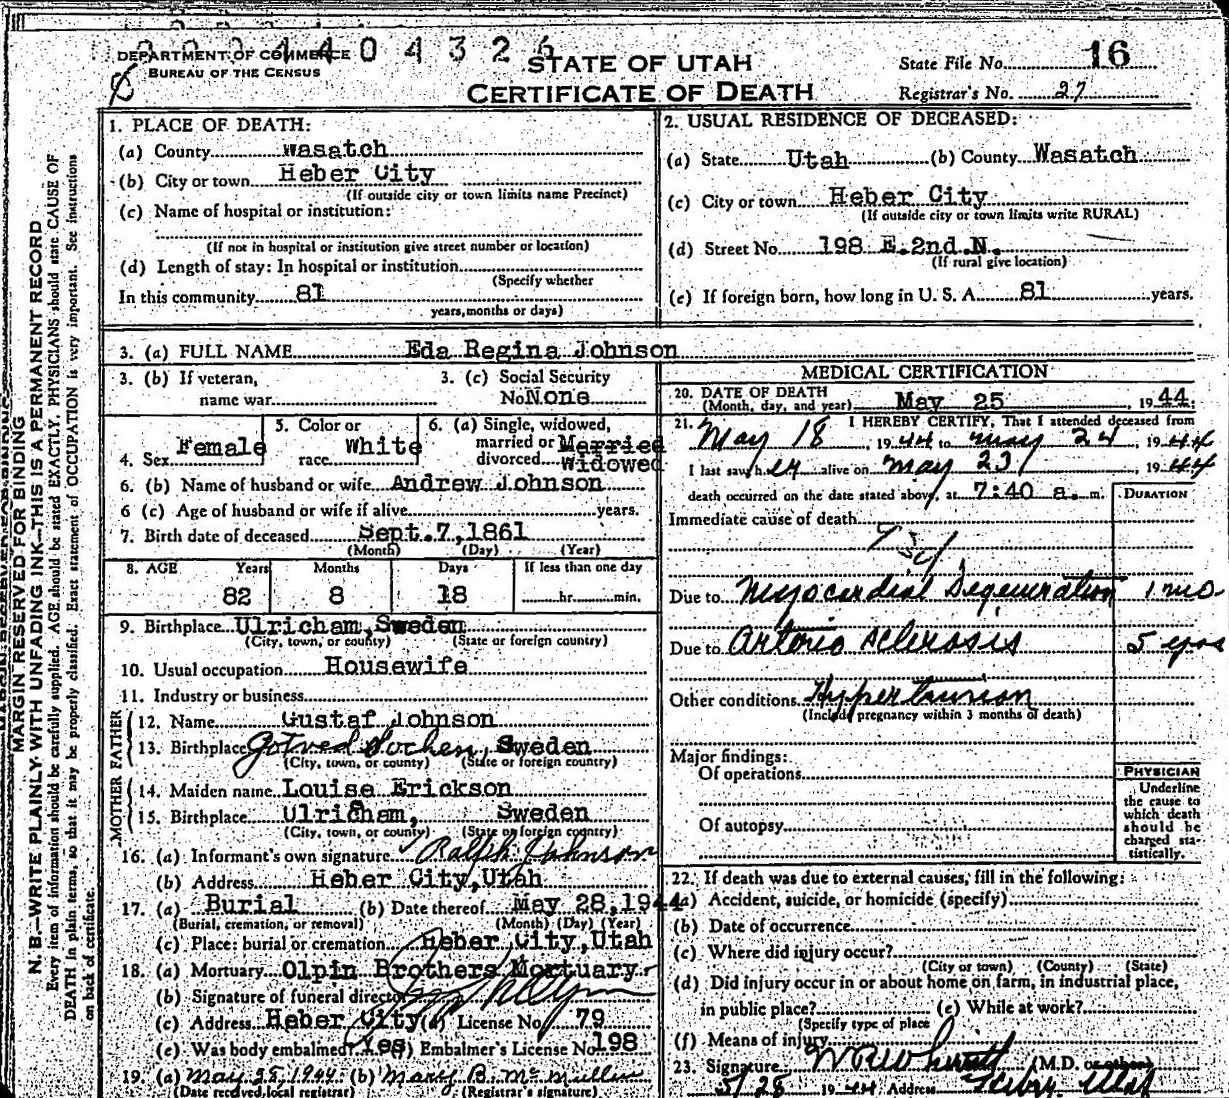 DEPARTMENT OF COMMERCE
BUREAU OF THE CENSUS
0 4 3 2 6
STATE OF UTAH
CERTIFICATE OF DEATH
State File No. 16
Registrar's No. 27
MARGIN RESERVED FOR BINDING
N. B.—WRITE PLAINLY WITH UNFADING INK—THIS IS A PERMANENT RECORD
Every item of information should be carefully supplied. AGE should be stated EXACTLY. PHYSICIANS should state CAUSE OF
DEATH in plain terms, so that it may be properly classified. Exact statement of OCCUPATION is very important. See instructions
on back of certificate.
1. PLACE OF DEATH:
(a) County Wasatch
(b) City or town Heber City
(If outside city or town limits name Precinct)
(c) Name of hospital or institution:
(If not in hospital or institution give street number or location)
(d) Length of stay: In hospital or institution
(Specify whether
In this community 81
years, months or days)
2. USUAL RESIDENCE OF DECEASED:
(a) State Utah (b) County Wasatch
(c) City or town Heber City
(If outside city or town limits write RURAL)
(d) Street No. 198 E. 2nd. N.
(If rural give location)
(e) If foreign born, how long in U. S. A. 81 years.
3. (a) FULL NAME Eda Regina Johnson
3. (b) If veteran,
name war
3. (c) Social Security
No None
4. Sex Female
5. Color or
race White
6. (a) Single, widowed,
married or Married
divorced Widowed
6. (b) Name of husband or wife Andrew Johnson
6 (c) Age of husband or wife if alive years.
7. Birth date of deceased Sept. 7, 1861
(Month) (Day) (Year)
8. AGE Years Months Days If less than one day
82 8 18 hr. min.
9. Birthplace Ulricham, Sweden
(City, town, or county) (State or foreign country)
10. Usual occupation Housewife
11. Industry or business
FATHER
12. Name Gustaf Johnson
13. Birthplace Sweden
(City, town, or county) (State or foreign country)
MOTHER
14. Maiden name Louise Erickson
15. Birthplace Ulricham, Sweden
(City, town, or county) (State or foreign country)
16. (a) Informant's own signature Ralph Johnson
(b) Address Heber City, Utah
17. (a) Burial (b) Date thereof May 28, 1944
(Burial, cremation, or removal) (Month) (Day) (Year)
(c) Place: burial or cremation Heber City, Utah
18. (a) Mortuary Olpin Brothers Mortuary
(b) Signature of funeral director
(c) Address Heber City (d) License No. 79
(e) Was body embalmed? Yes (f) Embalmer's License No. 198
19. (a) May 28, 1944 (b) Mary B. McMullin
(Date received local registrar) (Registrar's signature)
MEDICAL CERTIFICATION
20. DATE OF DEATH
(Month, day, and year) May 25, 1944
21. I HEREBY CERTIFY, That I attended deceased from
May 18, 1944 to May 24, 1944
I last saw her alive on May 23, 1944
death occurred on the date stated above, at 7:40 a. m.
DURATION
Immediate cause of death
Due to Myocardial Degeneration 1 mo.
Due to Arterio Sclerosis 5 yrs
Other conditions Hypertension
(Include pregnancy within 3 months of death)
Major findings:
Of operations
Of autopsy
PHYSICIAN
Underline
the cause to
which death
should be
charged sta-
tistically.
22. If death was due to external causes, fill in the following:
(a) Accident, suicide, or homicide (specify)
(b) Date of occurrence
(c) Where did injury occur?
(City or town) (County) (State)
(d) Did injury occur in or about home on farm, in industrial place,
in public place? (e) While at work?
(Specify type of place
(f) Means of injury
23. Signature (M.D. or other)
5/28 1944 Address Heber, Utah